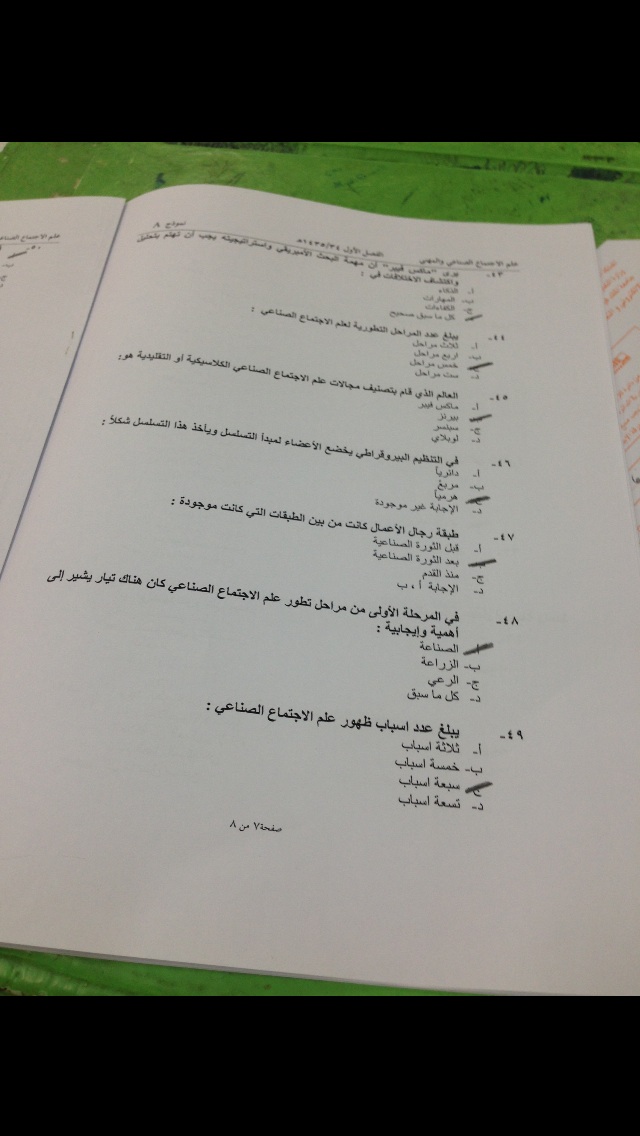 علم الاجتماع الصناعي والمهني الفصل الأول ١٤٣٥/٣٤هـ نموذج A
٤٣- يرى "ماكس فيبر" أن مهمة البحث الأمبريقي واستراتيجيته يجب أن تهتم بتحليل
واكتشاف الاختلافات في :
أ- الذكاء
ب- المهارات
ج- الكفاءات
د- كل ما سبق صحيح
٤٤- يبلغ عدد المراحل التطورية لعلم الاجتماع الصناعي :
أ- ثلاث مراحل
ب- اربع مراحل
ج- خمس مراحل
د- ست مراحل
٤٥- العالم الذي قام بتصنيف مجالات علم الاجتماع الصناعي الكلاسيكية أو التقليدية هو:
أ- ماكس فيبر
ب- بيرنز
ج- سبلسر
د- لوبلاي
٤٦- في التنظيم البيروقراطي يخضع الأعضاء لمبدأ التسلسل ويأخذ هذا التسلسل شكلاً :
أ- دائرياً
ب- مربع
ج- هرمياً
د- الإجابة غير موجودة
٤٧- طبقة رجال الأعمال كانت من بين الطبقات التي كانت موجودة :
أ- قبل الثورة الصناعية
ب- بعد الثورة الصناعية
ج- منذ القدم
د- الإجابة أ ، ب
٤٨- في المرحلة الأولى من مراحل تطور علم الاجتماع الصناعي كان هناك تيار يشير إلى
أهمية وإيجابية :
أ- الصناعة
ب- الزراعة
ج- الرعي
د- كل ما سبق
٤٩- يبلغ عدد اسباب ظهور علم الاجتماع الصناعي :
أ- ثلاثة اسباب
ب- خمسة اسباب
ج- سبعة اسباب
د- تسعة اسباب
صفحة ٧ من ٨
علم الاجتماع الصناعي